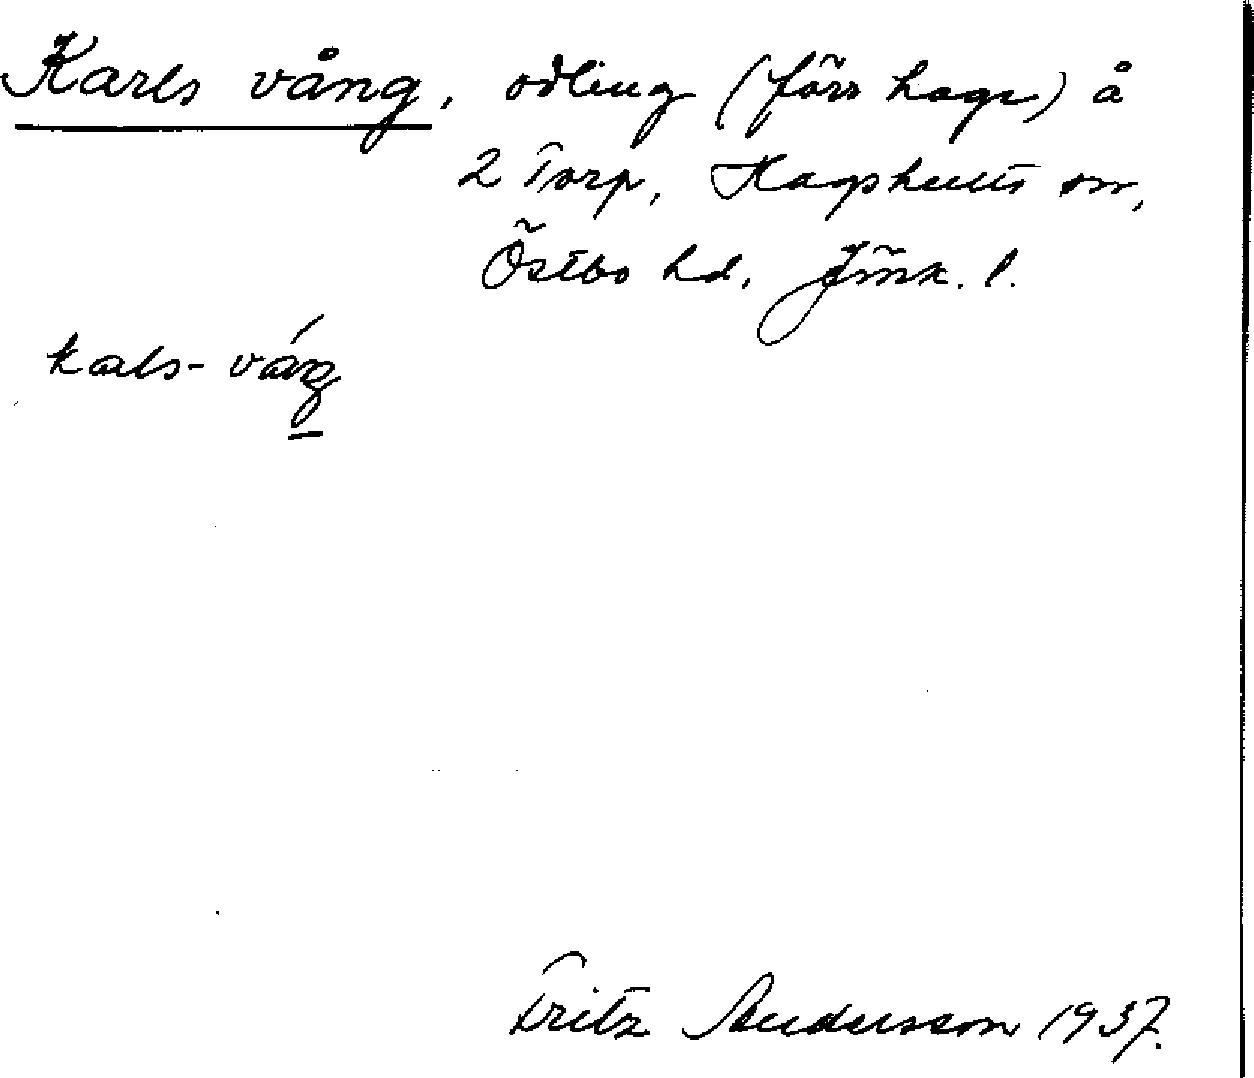 Karls vång, odling (förr hage) å
2 Torp, Hagshults sn,
Östbo hd. Jönk. l.
kals-váŋ
Fritz Andersson 1937.